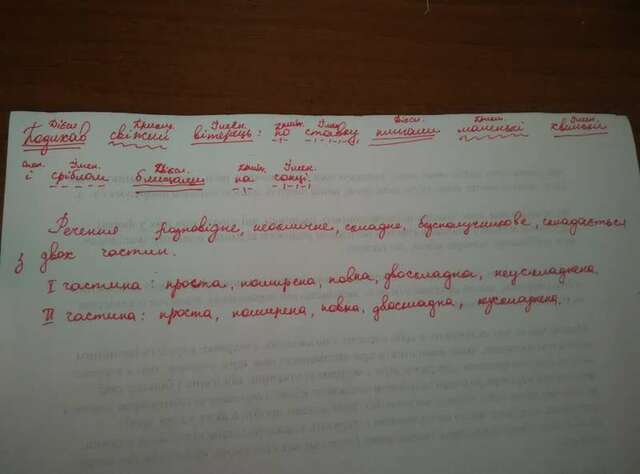 Дієсл. Прикм. Імен. прийм. Імен. Дієсл. Прикм. Імен.
Подихав свіжий вітерець: по ставку пишали маленькі хвильки
Спол. Імен. Дієсл. прийм. Імен.
і сріблом блищали на сонці.
Речення розповідне, неокличне, складне, безсполучникове, складається
з двох частин.
I частина: проста, поширена, повна, двоскладна, неускладнена
II частина: проста, поширена, повна, двоскладна,